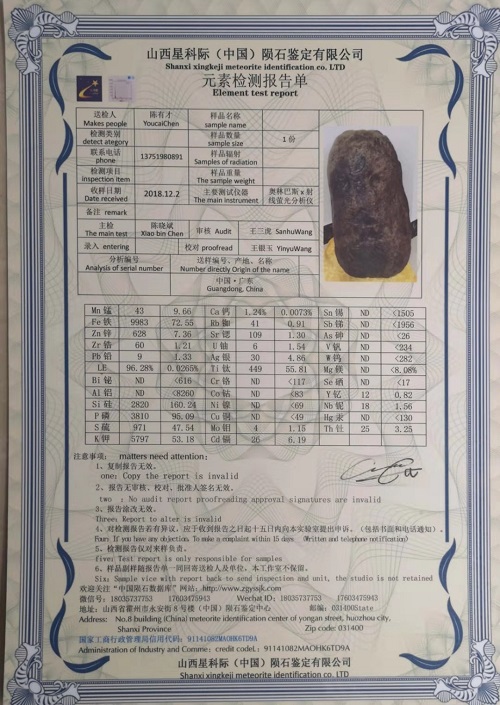 山西星科际（中国）陨石鉴定有限公司
Shanxi xingkeji meteorite identification co. LTD
元素检测报告单
Element test report
送检人 Makes people 陈有才 YoucaiChen 样品名称 sample name
检测类别 detect ategory 样品数量 sample size 1 份
联系电话 phone 13751980891 样品辐射 Samples of radiation
检测项目 inspection item 样品重量 The sample weight
收样日期 Date received 2018.12.2 主要测试仪器 The main instrument 奥林巴斯 x 射线萤光分析仪
备注 remark
主检 The main test 陈晓斌 Xiao bin Chen 审核 Audit 王三虎 SanhuWang
录入 entering 校对 proofread 王银玉 YinyuWang
分析编号 Analysis of serial number 送样编号、产地、名称 Number directly Origin of the name
中国·广东
Guangdong, China
Mn 锰 43 9.66 Ca 钙 1.24% 0.0073% Sn 锡 ND <1505
Fe 铁 9983 72.55 Rb 铷 41 0.91 Sb 锑 ND <1956
Zn 锌 628 7.36 Sr 锶 109 1.30 As 砷 ND <26
Zr 锆 60 1.21 U 铀 6 1.54 V 钒 ND <234
Pb 铅 9 1.33 Ag 银 30 4.86 W 钨 ND <282
LE 96.28% 0.0265% Ti 钛 449 55.81 Mg 镁 ND <8.08%
Bi 铋 ND <616 Cr 铬 ND <117 Se 硒 ND <17
Al 铝 ND <8260 Co 钴 ND <83 Y 钇 12 0.82
Si 硅 2820 160.24 Ni 镍 ND <69 Nb 铌 18 1.56
P 磷 3810 95.09 Cu 铜 ND <49 Hg 汞 ND <130
S 硫 971 47.54 Mo 钼 4 1.15 Th 钍 25 3.25
K 钾 5797 53.18 Cd 镉 26 6.19
注意事项： matters need attention:
1、复制报告无效。
one: Copy the report is invalid
2、报告无审核、校对、批准人签名无效。
two : No audit report proofreading approval signatures are invalid
3、报告涂改无效。
Three: Report to alter is invalid
4、对检测报告若有异议，应于收到报告之日起十五日内向本实验室提出申诉，（包括书面和电话通知）。
Four: If you have any objections, to make a complaint within 15 days (Written and telephone notification)
5、检测报告仅对来样负责。
Five: Test report is only responsible for samples
6、样品副样随报告单一同回寄送检人及单位，本工作室不保留。
Six: Sample vice with report back to send inspection and unit, the studio is not retained
欢迎关注“中国陨石数据库”网站:http://www.zgyisjk.com
微信号: 18035737753 17603475943 Wechat ID: 18035737753 17603475943
地址：山西省霍州市永安街 8 号楼（中国）陨石鉴定中心 邮编：031400State
Address: No.8 building (China) meteorite identification center of yongan street, huozhou city,
Shanxi Province Zip code: 031400
国家工商行政管理局信用代码: 91141082MAOHK6TD9A
Administration of Industry and Comme: credit codeL: 91141082MAOHK6TD9A
山西星科际（中国）陨石鉴定有限公司
Shanxi xingkeji meteorite identification co. LTD